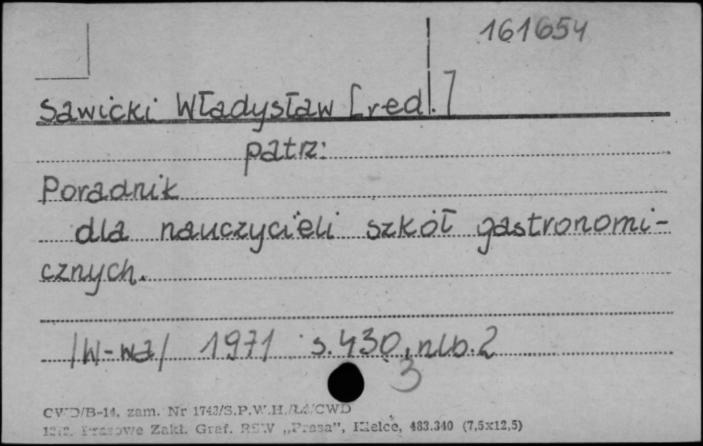 161654
Sawicki Władysław [red.]
patrz:
Poradnik
dla nauczycieli szkół gastronomi-
cznych.
/W-wa/ 1971 s. 430, nlb. 2
3
CWD/B-14. zam. Nr 1743/S.P.W.H./Ł4/CWD
Prasowe Zakł. Graf. RSW „Prasa", Kielce, 483.340 (7,5x12,5)